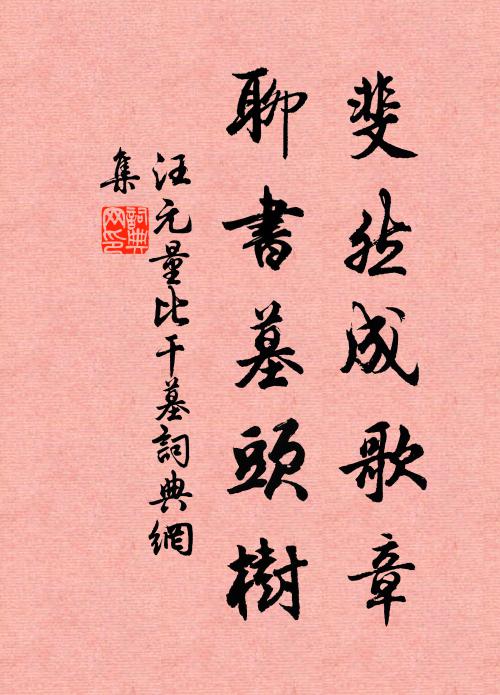 斐然成歌章
聊書墓頭樹
汪元量比干墓詞典網
集
詞典網印